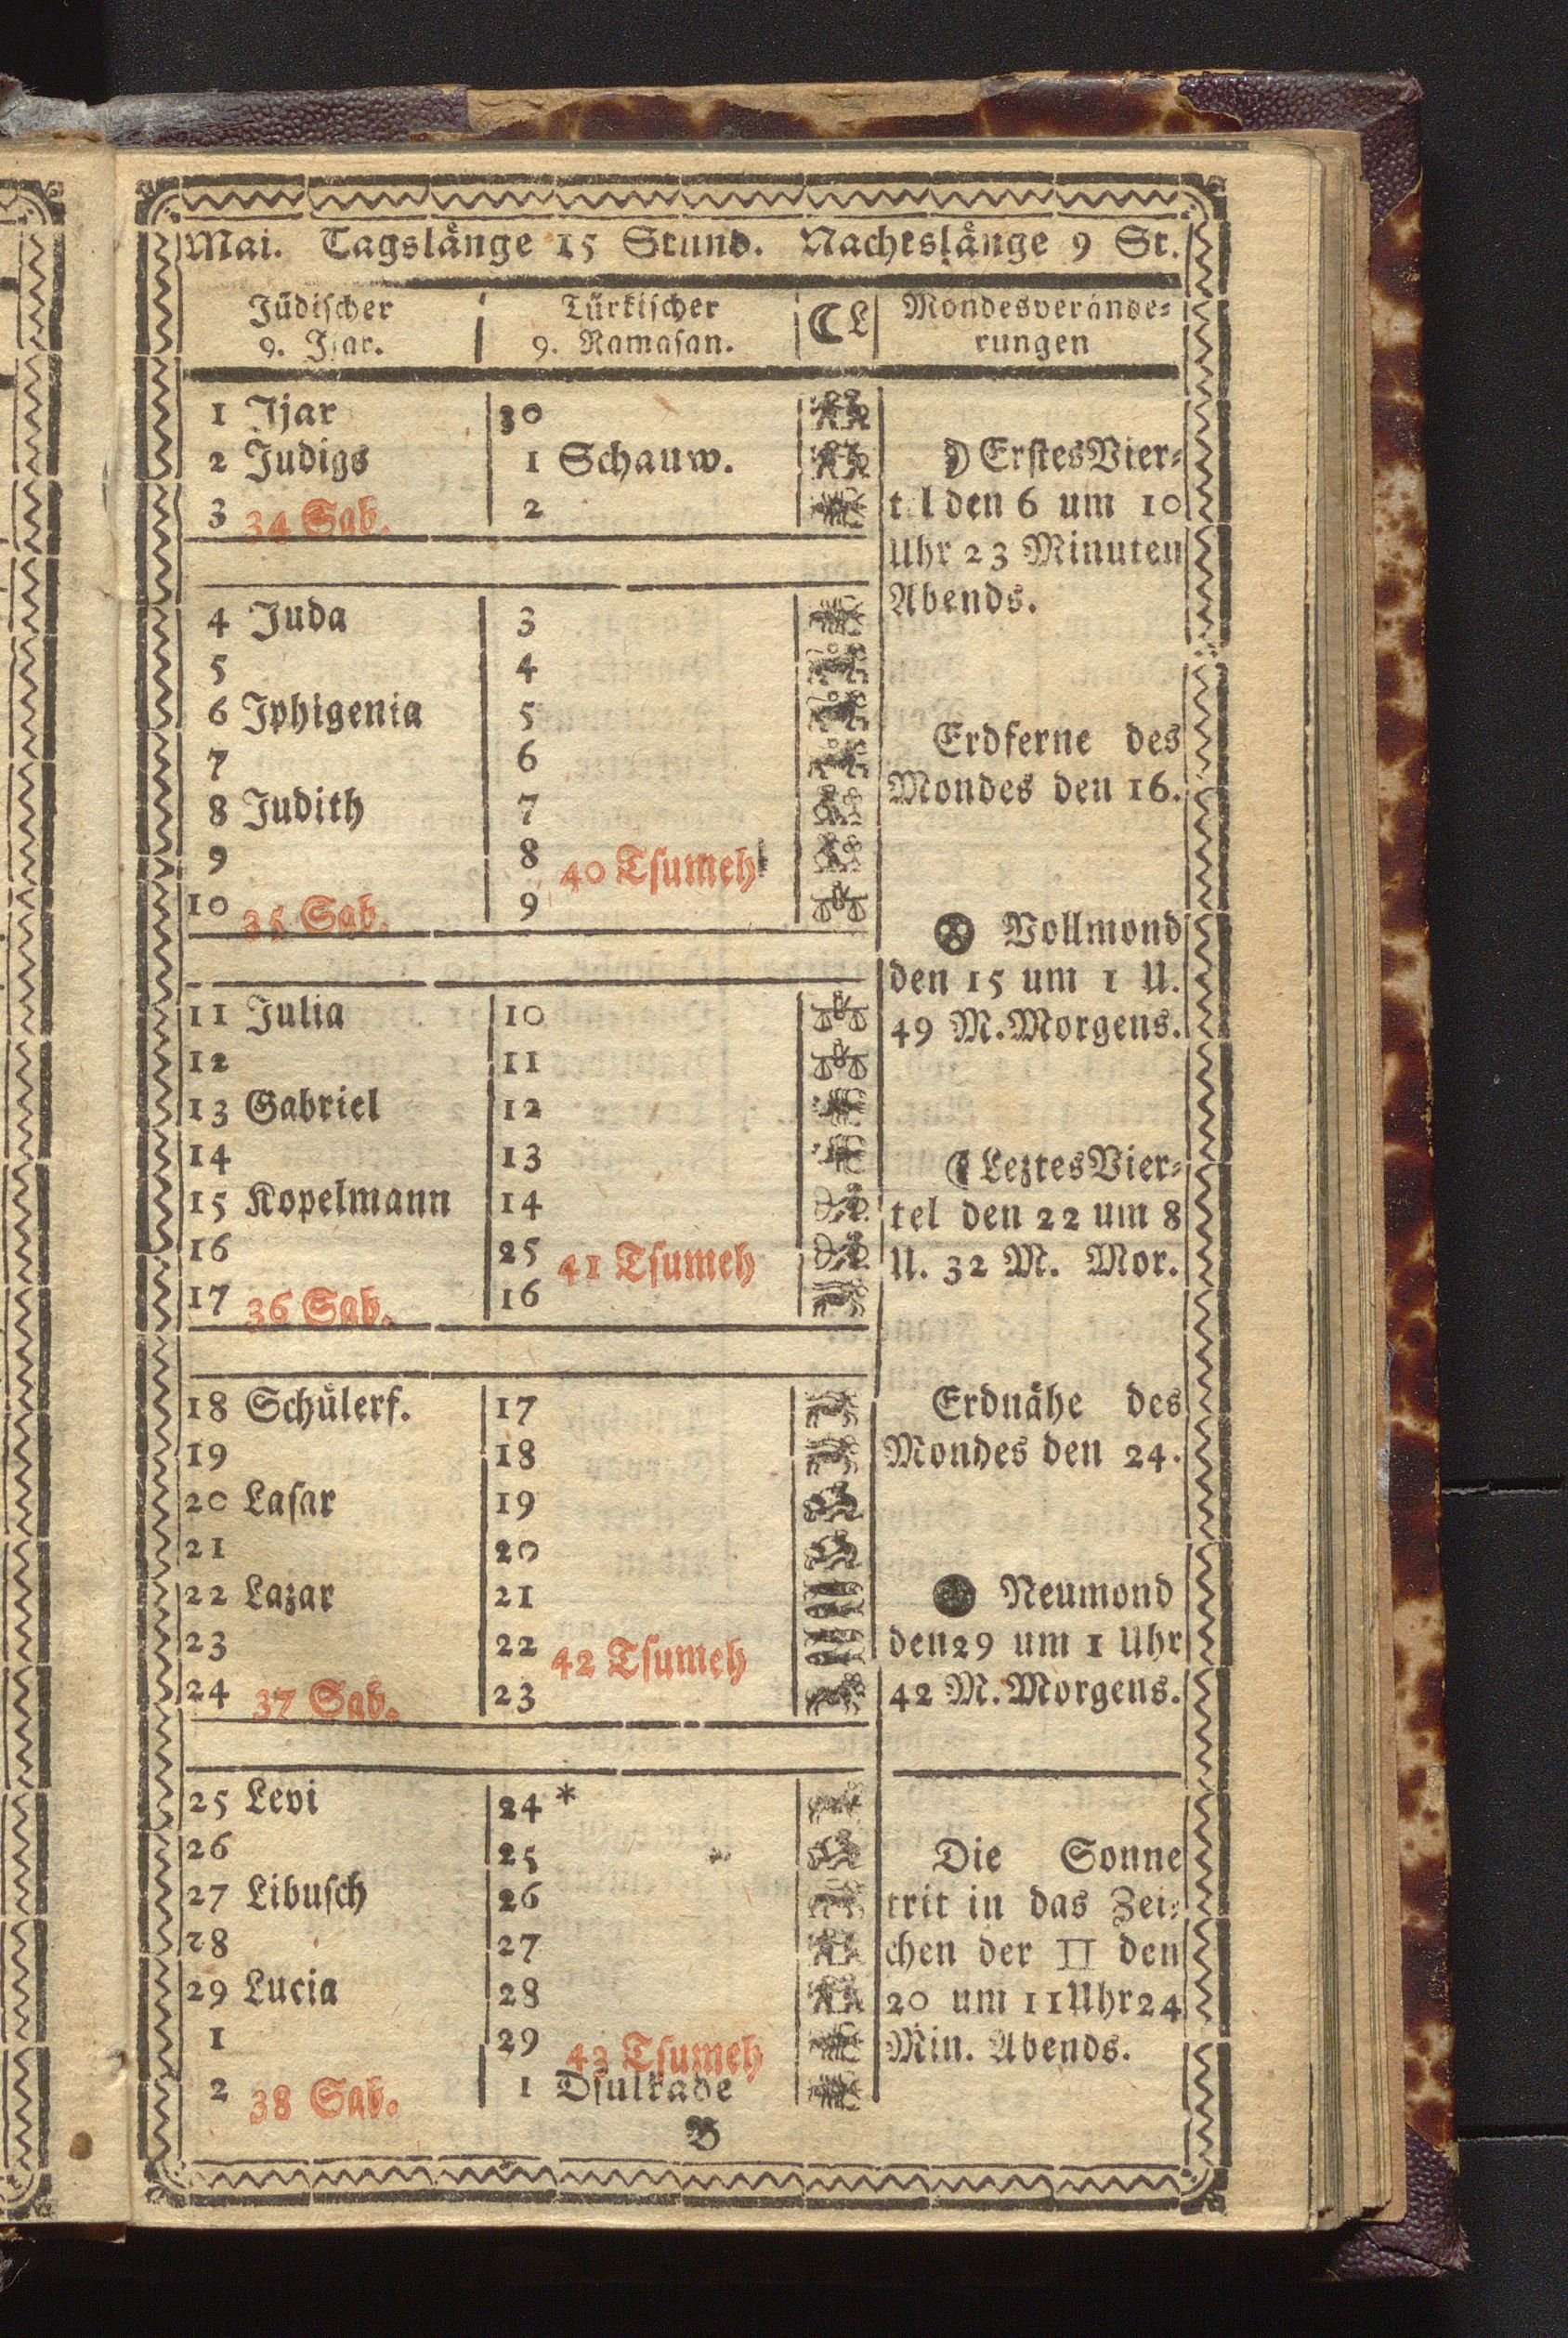 Mai. Tagslänge 15 Stund. Nachtslänge 9 St.
Jüdischer Türkischer ☾L Mondesverände-
9. Jjar. 9. Ramasan. rungen
1 Jjar 30
2 Judigs 1 Schauw.
3 34 Sab. 2
4 Juda 3
5 4
6 Jphigenia 5
7 6
8 Judith 7
9 8 40 Tsumeh
10 35 Sab. 9
11 Julia 10
12 11
13 Gabriel 12
14 13
15 Kopelmann 14
16 25 41 Tsumeh
17 36 Sab. 16
18 Schülerf. 17
19 18
20 Lasar 19
21 20
22 Lazar 21
23 22 42 Tsumeh
24 37 Sab. 23
25 Levi 24 *
26 25
27 Libusch 26
28 27
29 Lucia 28
1 29 43 Tsumeh
2 38 Sab. 1 Dsulkade
☽ Erstes Vier-
t l den 6 um 10
Uhr 23 Minuten
Abends.
Erdferne des
Mondes den 16.
Vollmond
den 15 um 1 U.
49 M. Morgens.
☾ Leztes Vier-
tel den 22 um 8
U. 32 M. Mor.
Erdnähe des
Mondes den 24.
Neumond
den 29 um 1 Uhr
42 M. Morgens.
Die Sonne
trit in das Zei-
chen der II den
20 um 11 Uhr 24
Min. Abends.
B